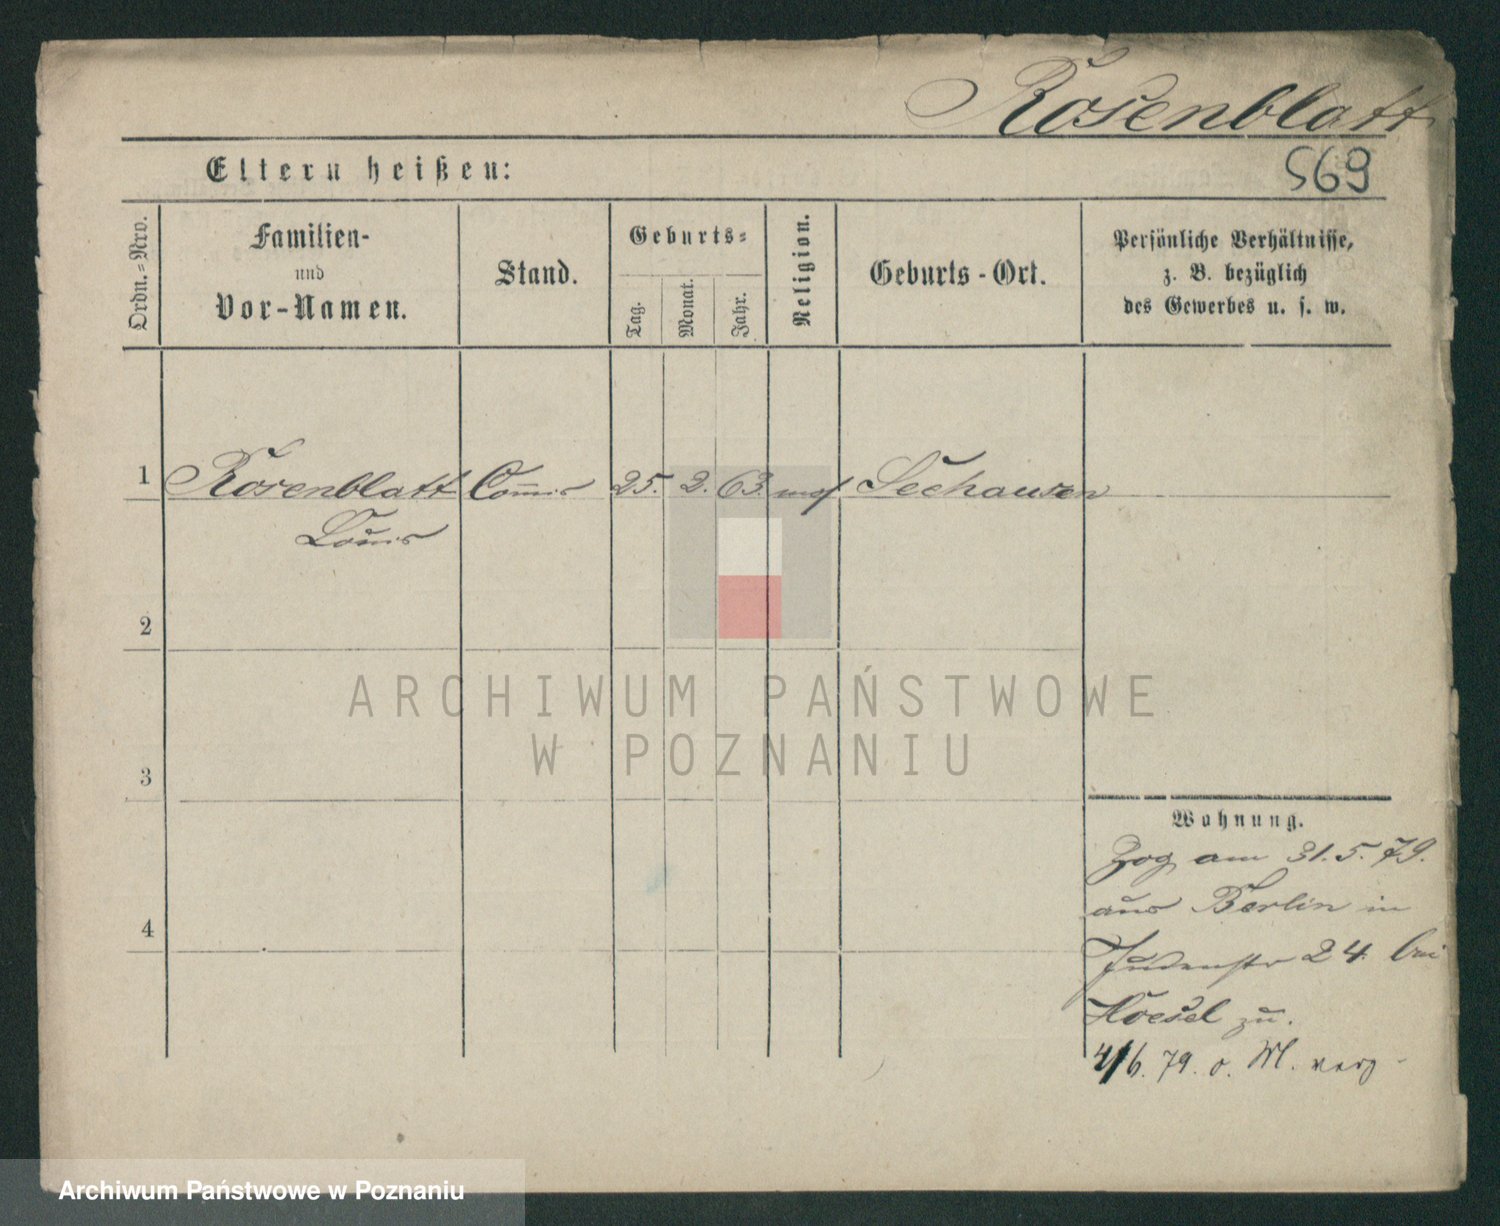 Rosenblatt
Eltern heißen:
569
Ordn.=Nro.
Familien-
und
Vor-Namen.
Stand.
Geburts=
Tag.
Monat.
Jahr.
Religion.
Geburts-Ort.
Persönliche Verhältnisse,
z. B. bezüglich
des Gewerbes u. s. w.
1 Rosenblatt Commis 25. 2. 63 mos Seehausen
Louis
2
3
4
Wohnung.
Zog am 31. 5. 79.
aus Berlin in
Judenstr 24. bei
zu.
4/6. 79. o. M. verz
ARCHIWUM PAŃSTWOWE
W POZNANIU
Archiwum Państwowe w Poznaniu